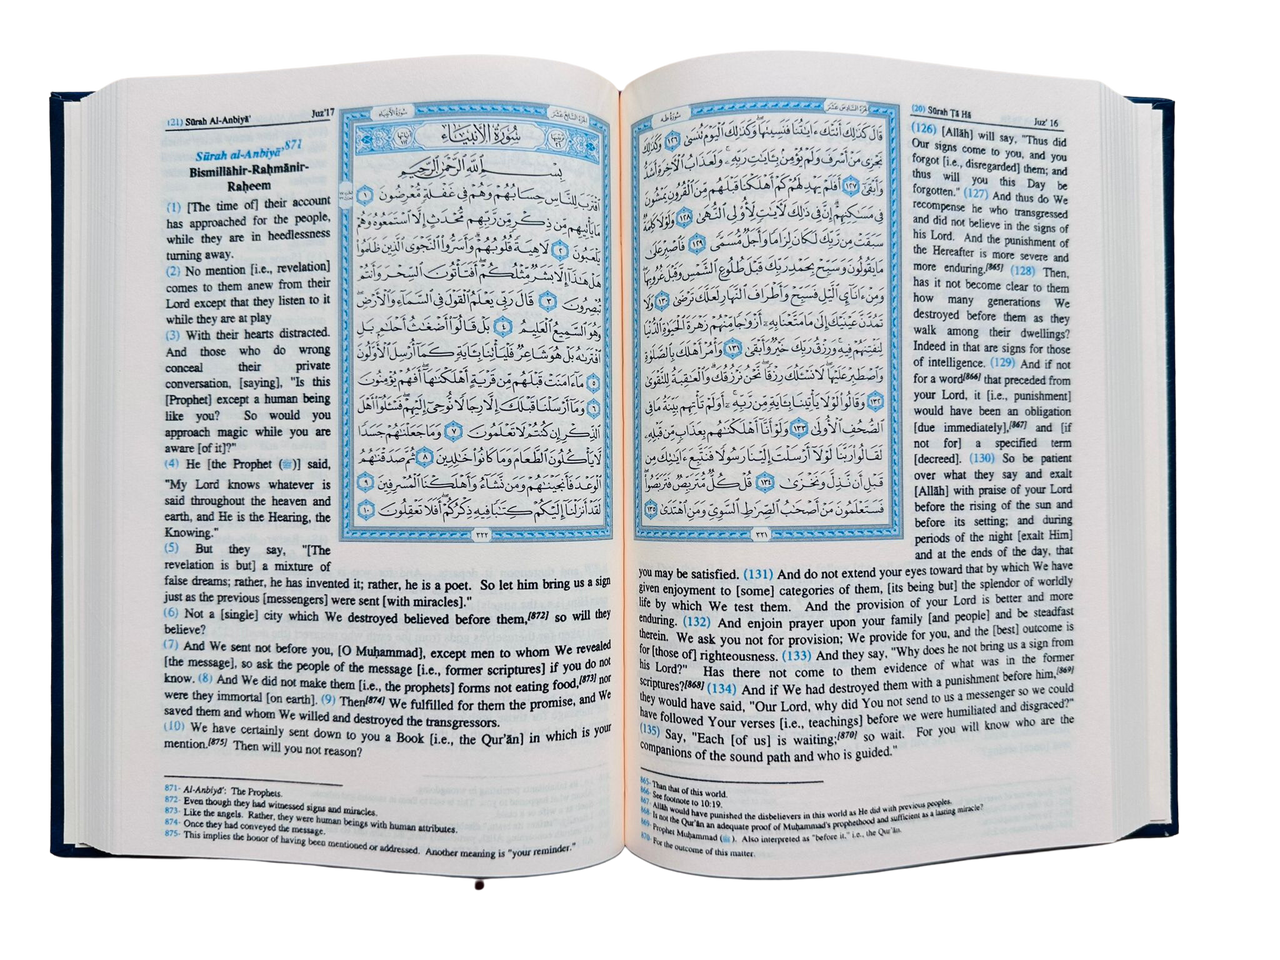 (20) Sūrah Tā Hā
Juz' 16
سُورَةُ طه
الجُزْءُ السَّادِسَ عَشَرَ
قَالَ كَذَٰلِكَ أَتَتْكَ ءَايَٰتُنَا فَنَسِيتَهَا وَكَذَٰلِكَ ٱلْيَوْمَ تُنسَىٰ ١٢٦ وَكَذَٰلِكَ
نَجْزِى مَنْ أَسْرَفَ وَلَمْ يُؤْمِنۢ بِـَٔايَٰتِ رَبِّهِۦ وَلَعَذَابُ ٱلْءَاخِرَةِ أَشَدُّ
وَأَبْقَىٰٓ ١٢٧ أَفَلَمْ يَهْدِ لَهُمْ كَمْ أَهْلَكْنَا قَبْلَهُم مِّنَ ٱلْقُرُونِ يَمْشُونَ
فِى مَسَٰكِنِهِمْ إِنَّ فِى ذَٰلِكَ لَءَايَٰتٍ لِّأُو۟لِى ٱلنُّهَىٰ ١٢٨ وَلَوْلَا كَلِمَةٌ
سَبَقَتْ مِن رَّبِّكَ لَكَانَ لِزَامًا وَأَجَلٌ مُّسَمًّى ١٢٩ فَٱصْبِرْ عَلَىٰ
مَا يَقُولُونَ وَسَبِّحْ بِحَمْدِ رَبِّكَ قَبْلَ طُلُوعِ ٱلشَّمْسِ وَقَبْلَ غُرُوبِهَا
وَمِنْ ءَانَآئِ ٱلَّيْلِ فَسَبِّحْ وَأَطْرَافَ ٱلنَّهَارِ لَعَلَّكَ تَرْضَىٰ ١٣٠ وَلَا
تَمُدَّنَّ عَيْنَيْكَ إِلَىٰ مَا مَتَّعْنَا بِهِۦٓ أَزْوَٰجًا مِّنْهُمْ زَهْرَةَ ٱلْحَيَوٰةِ ٱلدُّنْيَا
لِنَفْتِنَهُمْ فِيهِ وَرِزْقُ رَبِّكَ خَيْرٌ وَأَبْقَىٰ ١٣١ وَأْمُرْ أَهْلَكَ بِٱلصَّلَوٰةِ
وَٱصْطَبِرْ عَلَيْهَا لَا نَسْـَٔلُكَ رِزْقًا نَّحْنُ نَرْزُقُكَ وَٱلْعَٰقِبَةُ لِلتَّقْوَىٰ
١٣٢ وَقَالُوا۟ لَوْلَا يَأْتِينَا بِـَٔايَةٍ مِّن رَّبِّهِۦٓ أَوَلَمْ تَأْتِهِم بَيِّنَةُ مَا فِى
ٱلصُّحُفِ ٱلْأُولَىٰ ١٣٣ وَلَوْ أَنَّآ أَهْلَكْنَٰهُم بِعَذَابٍ مِّن قَبْلِهِۦ
لَقَالُوا۟ رَبَّنَا لَوْلَآ أَرْسَلْتَ إِلَيْنَا رَسُولًا فَنَتَّبِعَ ءَايَٰتِكَ مِن
قَبْلِ أَن نَّذِلَّ وَنَخْزَىٰ ١٣٤ قُلْ كُلٌّ مُّتَرَبِّصٌ فَتَرَبَّصُوا۟
فَسَتَعْلَمُونَ مَنْ أَصْحَٰبُ ٱلصِّرَٰطِ ٱلسَّوِىِّ وَمَنِ ٱهْتَدَىٰ ١٣٥
٣٢١
(126) [Allāh] will say, "Thus did
Our signs come to you, and you
forgot [i.e., disregarded] them; and
thus will you this Day be
forgotten." (127) And thus do We
recompense he who transgressed
and did not believe in the signs of
his Lord. And the punishment of
the Hereafter is more severe and
more enduring.[865] (128) Then,
has it not become clear to them
how many generations We
destroyed before them as they
walk among their dwellings?
Indeed in that are signs for those
of intelligence. (129) And if not
for a word[866] that preceded from
your Lord, it [i.e., punishment]
would have been an obligation
[due immediately],[867] and [if
not for] a specified term
[decreed]. (130) So be patient
over what they say and exalt
[Allāh] with praise of your Lord
before the rising of the sun and
before its setting; and during
periods of the night [exalt Him]
and at the ends of the day, that
you may be satisfied. (131) And do not extend your eyes toward that by which We have
given enjoyment to [some] categories of them, [its being but] the splendor of worldly
life by which We test them. And the provision of your Lord is better and more
enduring. (132) And enjoin prayer upon your family [and people] and be steadfast
therein. We ask you not for provision; We provide for you, and the [best] outcome is
for [those of] righteousness. (133) And they say, "Why does he not bring us a sign from
his Lord?" Has there not come to them evidence of what was in the former
scriptures?[868] (134) And if We had destroyed them with a punishment before him,[869]
they would have said, "Our Lord, why did You not send to us a messenger so we could
have followed Your verses [i.e., teachings] before we were humiliated and disgraced?"
(135) Say, "Each [of us] is waiting;[870] so wait. For you will know who are the
companions of the sound path and who is guided."
865- Than that of this world.
866- See footnote to 10:19.
867- Allāh would have punished the disbelievers in this world as He did with previous peoples.
868- Is not the Qur'ān an adequate proof of Muḥammad's prophethood and sufficient as a lasting miracle?
869- Prophet Muḥammad (ﷺ). Also interpreted as "before it," i.e., the Qur'ān.
870- For the outcome of this matter.
(21) Sūrah Al-Anbiyā'
Juz'17
سُورَةُ الأَنبِيَاءِ
الجُزْءُ السَّابِعَ عَشَرَ
سُورَةُ الأَنبِيَاءِ
بِسْمِ ٱللَّهِ ٱلرَّحْمَٰنِ ٱلرَّحِيمِ
ٱقْتَرَبَ لِلنَّاسِ حِسَابُهُمْ وَهُمْ فِى غَفْلَةٍ مُّعْرِضُونَ ١
مَا يَأْتِيهِم مِّن ذِكْرٍ مِّن رَّبِّهِم مُّحْدَثٍ إِلَّا ٱسْتَمَعُوهُ وَهُمْ
يَلْعَبُونَ ٢ لَاهِيَةً قُلُوبُهُمْ وَأَسَرُّوا۟ ٱلنَّجْوَى ٱلَّذِينَ ظَلَمُوا۟
هَلْ هَٰذَآ إِلَّا بَشَرٌ مِّثْلُكُمْ أَفَتَأْتُونَ ٱلسِّحْرَ وَأَنتُمْ
تُبْصِرُونَ ٣ قَالَ رَبِّى يَعْلَمُ ٱلْقَوْلَ فِى ٱلسَّمَآءِ وَٱلْأَرْضِ
وَهُوَ ٱلسَّمِيعُ ٱلْعَلِيمُ ٤ بَلْ قَالُوٓا۟ أَضْغَٰثُ أَحْلَٰمٍۭ بَلِ
ٱفْتَرَىٰهُ بَلْ هُوَ شَاعِرٌ فَلْيَأْتِنَا بِـَٔايَةٍ كَمَآ أُرْسِلَ ٱلْأَوَّلُونَ
٥ مَآ ءَامَنَتْ قَبْلَهُم مِّن قَرْيَةٍ أَهْلَكْنَٰهَآ أَفَهُمْ يُؤْمِنُونَ
٦ وَمَآ أَرْسَلْنَا قَبْلَكَ إِلَّا رِجَالًا نُّوحِىٓ إِلَيْهِمْ فَسْـَٔلُوٓا۟ أَهْلَ
ٱلذِّكْرِ إِن كُنتُمْ لَا تَعْلَمُونَ ٧ وَمَا جَعَلْنَٰهُمْ جَسَدًا
لَّا يَأْكُلُونَ ٱلطَّعَامَ وَمَا كَانُوا۟ خَٰلِدِينَ ٨ ثُمَّ صَدَقْنَٰهُمُ
ٱلْوَعْدَ فَأَنجَيْنَٰهُمْ وَمَن نَّشَآءُ وَأَهْلَكْنَا ٱلْمُسْرِفِينَ ٩
لَقَدْ أَنزَلْنَآ إِلَيْكُمْ كِتَٰبًا فِيهِ ذِكْرُكُمْ أَفَلَا تَعْقِلُونَ ١٠
٣٢٢
Sūrah al-Anbiyā'871
Bismillāhir-Raḥmānir-
Raḥeem
(1) [The time of] their account
has approached for the people,
while they are in heedlessness
turning away.
(2) No mention [i.e., revelation]
comes to them anew from their
Lord except that they listen to it
while they are at play
(3) With their hearts distracted.
And those who do wrong
conceal their private
conversation, [saying], "Is this
[Prophet] except a human being
like you? So would you
approach magic while you are
aware [of it]?"
(4) He [the Prophet (ﷺ)] said,
"My Lord knows whatever is
said throughout the heaven and
earth, and He is the Hearing, the
Knowing."
(5) But they say, "[The
revelation is but] a mixture of
false dreams; rather, he has invented it; rather, he is a poet. So let him bring us a sign
just as the previous [messengers] were sent [with miracles]."
(6) Not a [single] city which We destroyed believed before them,[872] so will they
believe?
(7) And We sent not before you, [O Muḥammad], except men to whom We revealed
[the message], so ask the people of the message [i.e., former scriptures] if you do not
know. (8) And We did not make them [i.e., the prophets] forms not eating food,[873] nor
were they immortal [on earth]. (9) Then[874] We fulfilled for them the promise, and We
saved them and whom We willed and destroyed the transgressors.
(10) We have certainly sent down to you a Book [i.e., the Qur'ān] in which is your
mention.[875] Then will you not reason?
871- Al-Anbiyā': The Prophets.
872- Even though they had witnessed signs and miracles.
873- Like the angels. Rather, they were human beings with human attributes.
874- Once they had conveyed the message.
875- This implies the honor of having been mentioned or addressed. Another meaning is "your reminder."